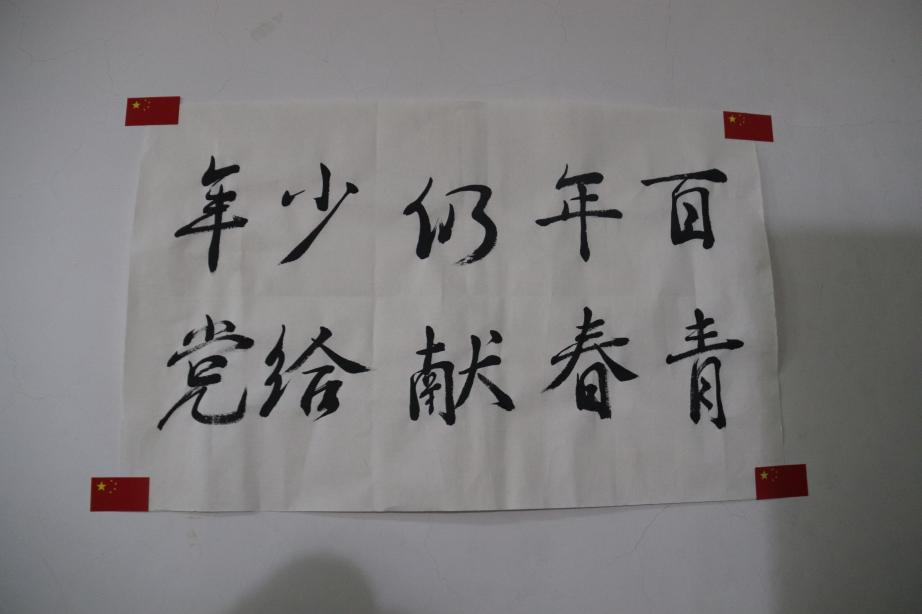 百年仍少年
青春献给党